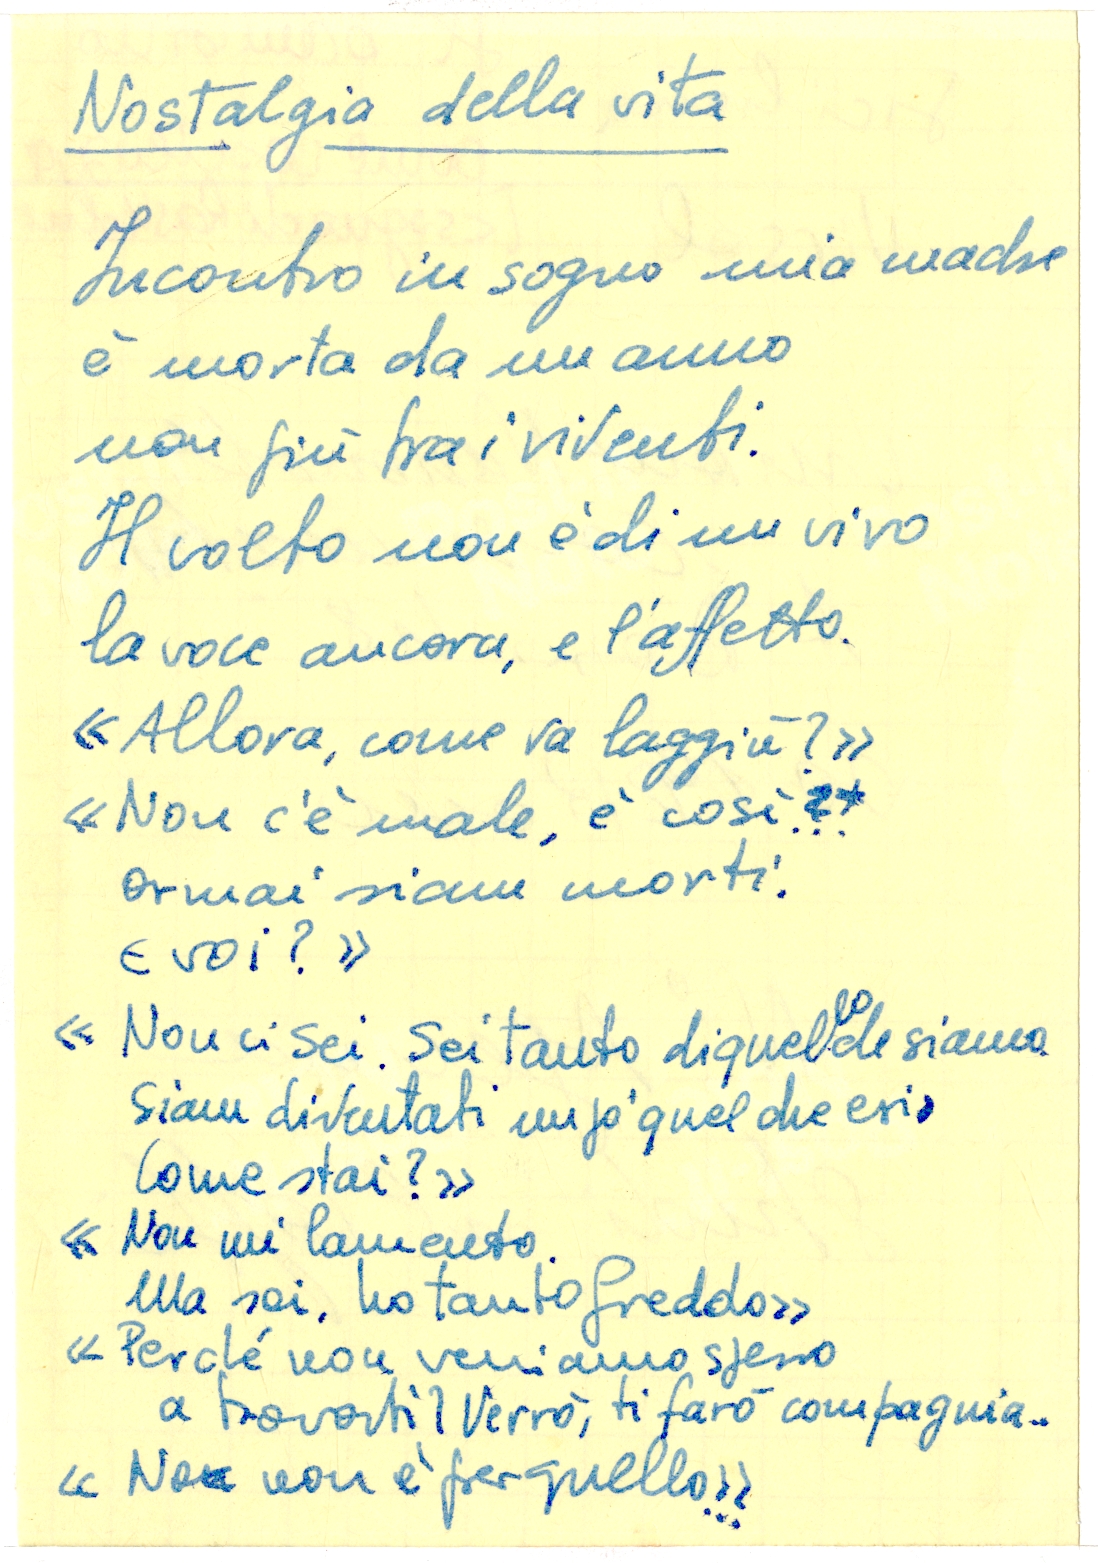 Nostalgia della vita
Incontro in sogno mia madre
è morta da un anno
non più tra i viventi.
Il volto non è di un vivo
la voce ancora, e l'affetto.
«Allora, come va laggiù?»
«Non c'è male, è così...
ormai siam morti.
E voi?»
«Non ci sei. Sei tanto di quello che siamo
siam diventati un po' quel che eri,
Come stai?»
«Non mi lamento.
Ma sai, ho tanto freddo»
«Perché non veniamo spesso
a trovarti? Verrò, ti farò compagnia..
«No non è per quello...»